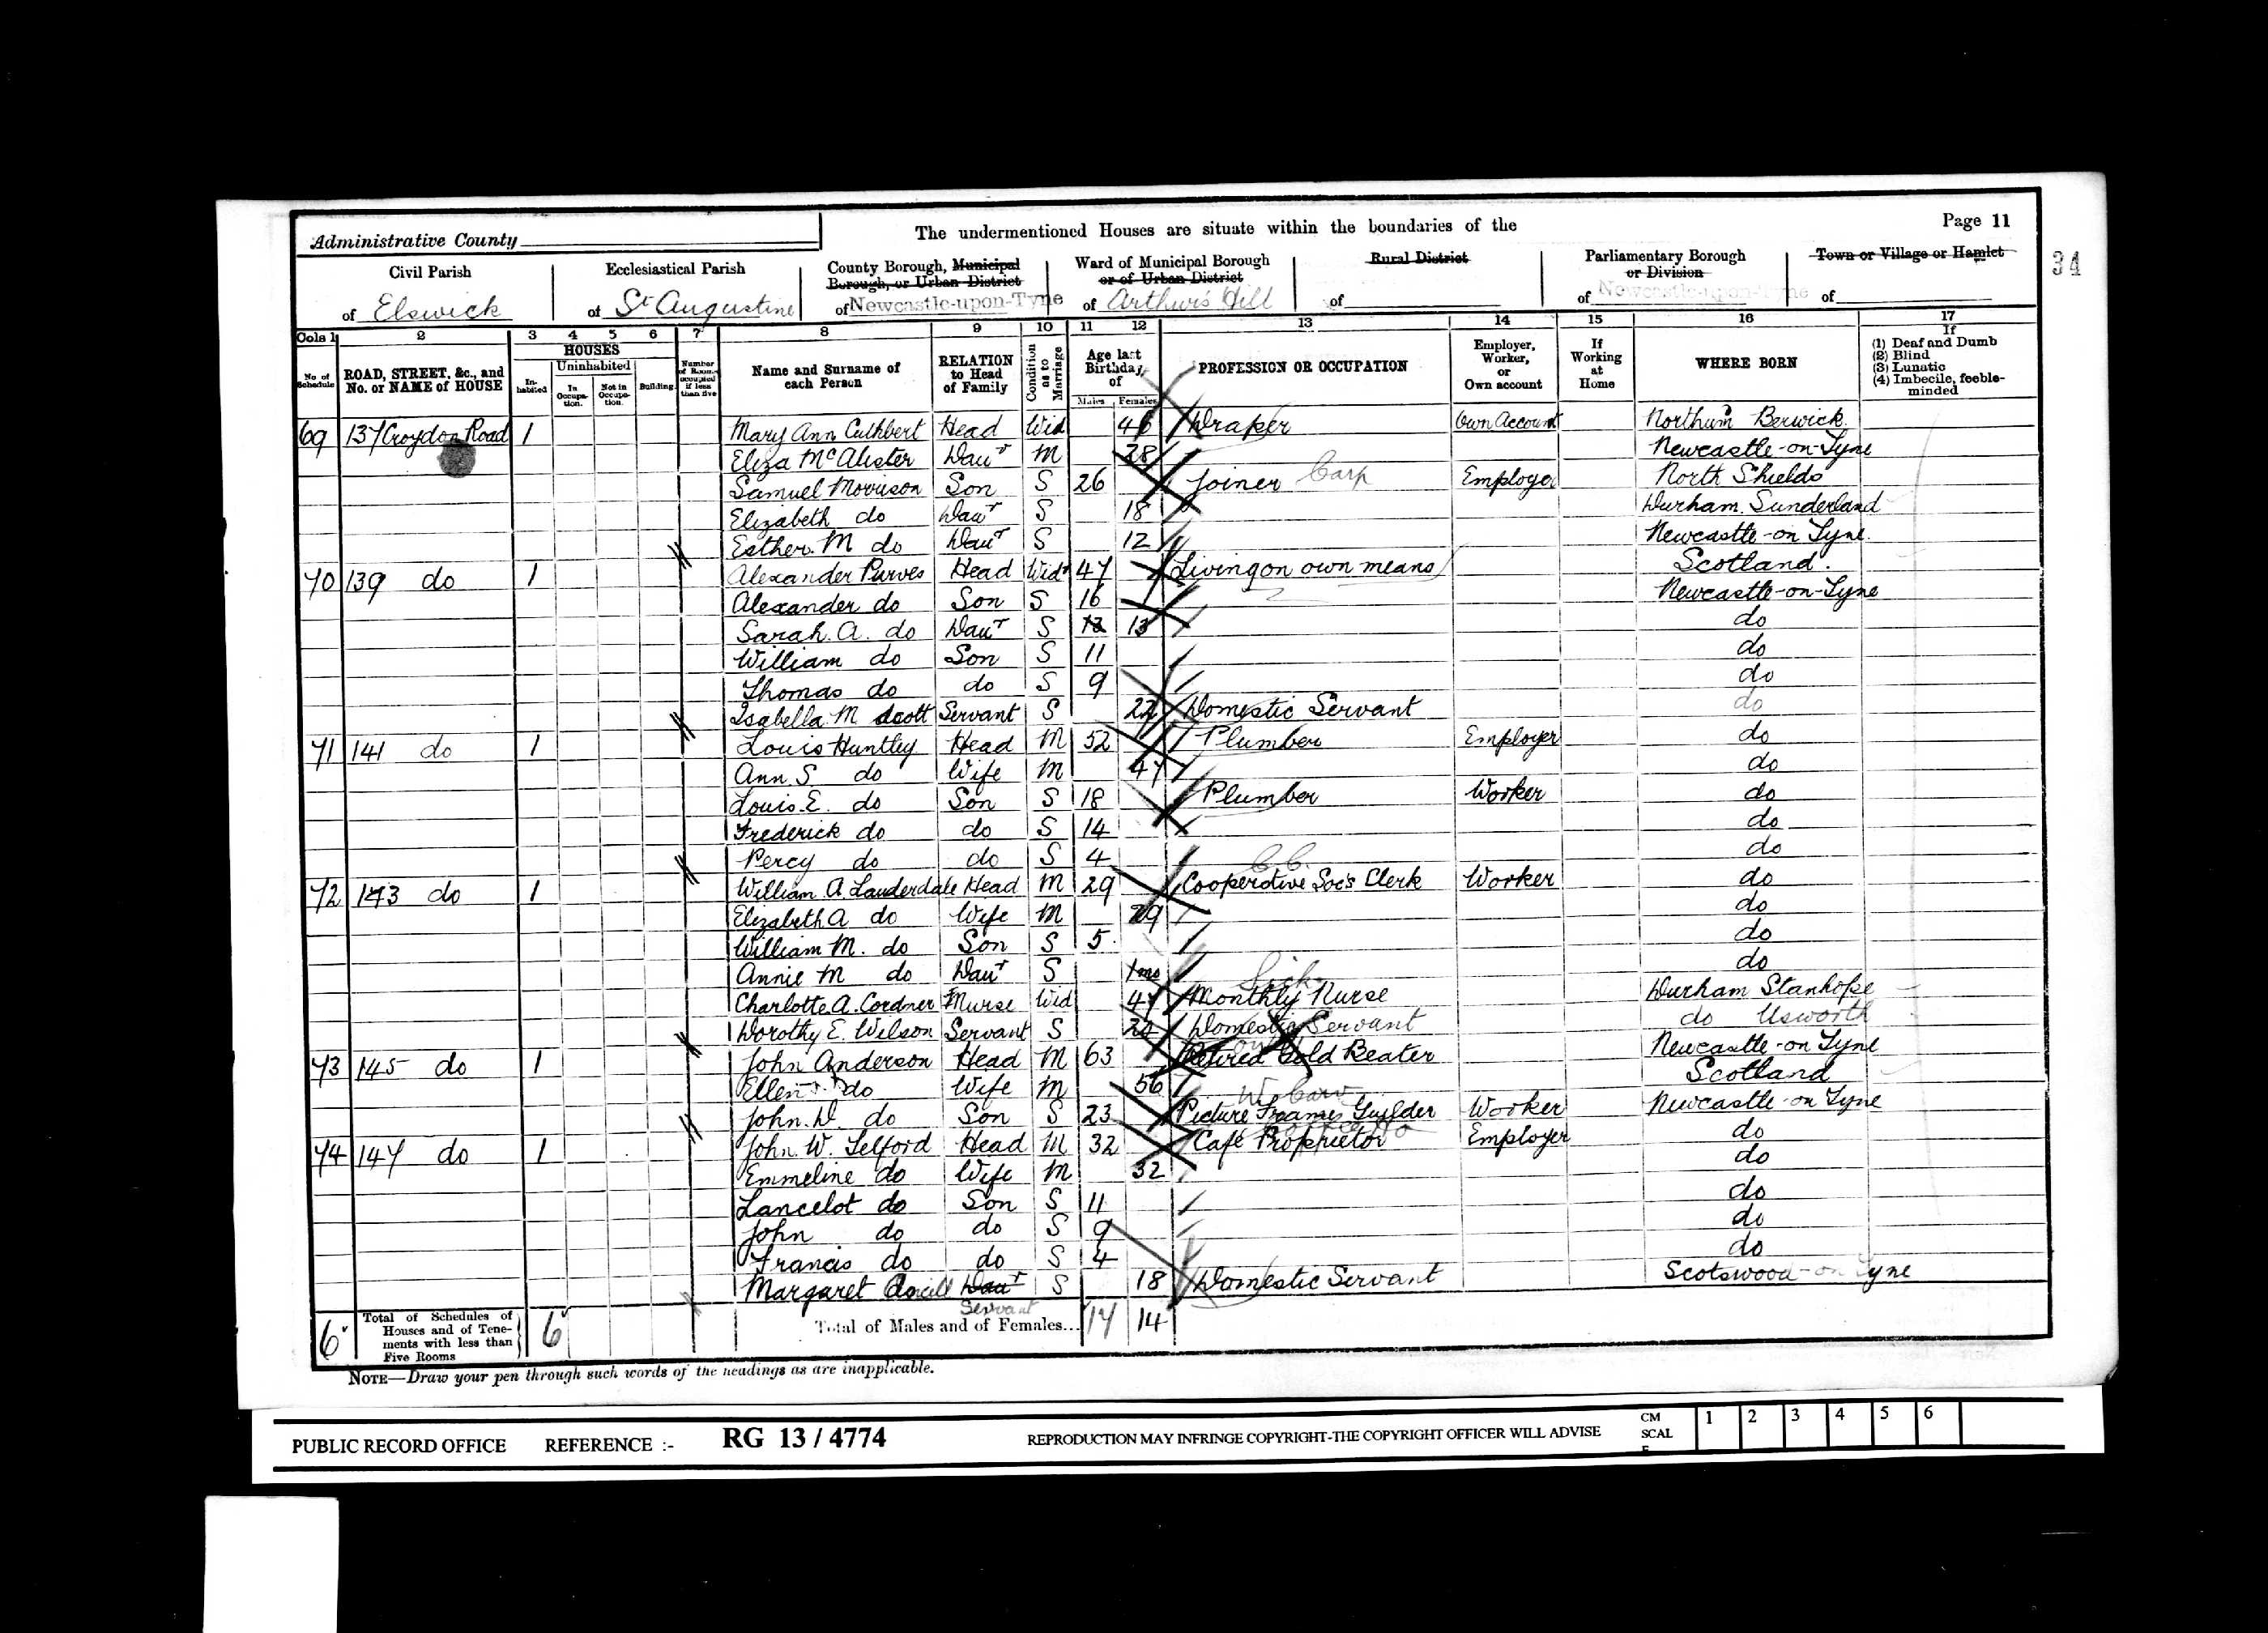 Page 11
The undermentioned Houses are situate within the boundaries of the
Administrative County
34
Civil Parish of Elswick
Ecclesiastical Parish of St Augustine
County Borough, Municipal Borough, or Urban District of Newcastle-upon-Tyne
Ward of Municipal Borough or of Urban District of Arthur's Hill
Rural District of
Parliamentary Borough or Division of Newcastle-upon-Tyne
Town or Village or Hamlet of
Cols 1 2 3 4 5 6 7 8 9 10 11 12 13 14 15 16 17
No. of Schedule
ROAD, STREET, &c., and No. or NAME of HOUSE
HOUSES
Inhabited
Uninhabited
In Occupation.
Not in Occupation.
Building.
Number of Rooms occupied if less than five
Name and Surname of each Person
RELATION to Head of Family
Condition as to Marriage
Age last Birthday of
Males Females
PROFESSION OR OCCUPATION
Employer, Worker, or Own account
If Working at Home
WHERE BORN
If
(1) Deaf and Dumb
(2) Blind
(3) Lunatic
(4) Imbecile, feeble-minded
69 137 Croydon Road 1 Mary Ann Cuthbert Head Wid 46 Draper Own Account Northum Berwick
Eliza McAlister Daur M 28 Newcastle-on-Tyne
Samuel Morrison Son S 26 Joiner Carp Employer North Shields
Elizabeth do Daur S 18 Durham Sunderland
Esther M do Daur S 12 Newcastle-on Tyne
70 139 do 1 Alexander Purves Head Widr 47 Living on own means Scotland
Alexander do Son S 16 Newcastle-on-Tyne
Sarah. A. do Daur S 13 13 do
William do Son S 11 do
Thomas do do S 9 do
Isabella M Scott Servant S 22 Domestic Servant do
71 141 do 1 Louis Huntley Head M 52 Plumber Employer do
Ann. S. do Wife M 47 do
Louis. E. do Son S 18 Plumber Worker do
Frederick do do S 14 do
Percy do do S 4 do
C.C.
72 143 do 1 William. A. Lauderdale Head M 29 Cooperative Soc's Clerk Worker do
Elizabeth A do Wife M 29 do
William M. do Son S 5 do
Annie M do Daur S 1 mo do
Sick
Charlotte A. Cordner Nurse Wid 47 Monthly Nurse Durham Stanhope
Dorothy E. Wilson Servant S 20 Domestic Servant do Usworth
73 145 do 1 John Anderson Head M 63 Retired Gold Beater Newcastle-on Tyne
Ellen do Wife M 56 Scotland
John. D. do Son S 23 Picture Frames Guilder Worker Newcastle-on Tyne
74 147 do 1 John. W. Telford Head M 32 Café Proprietor Employer do
Emmeline do Wife M 32 do
Lancelot do Son S 11 do
John do do S 9 do
Francis do do S 4 do
Margaret Daur S 18 Domestic Servant Scotswood-on Tyne
Servant
6 Total of Schedules of Houses and of Tenements with less than Five Rooms 6
Total of Males and of Females... 17 14
NOTE—Draw your pen through such words of the headings as are inapplicable.
PUBLIC RECORD OFFICE REFERENCE :- RG 13 / 4774 REPRODUCTION MAY INFRINGE COPYRIGHT-THE COPYRIGHT OFFICER WILL ADVISE
CM SCALE 1 2 3 4 5 6